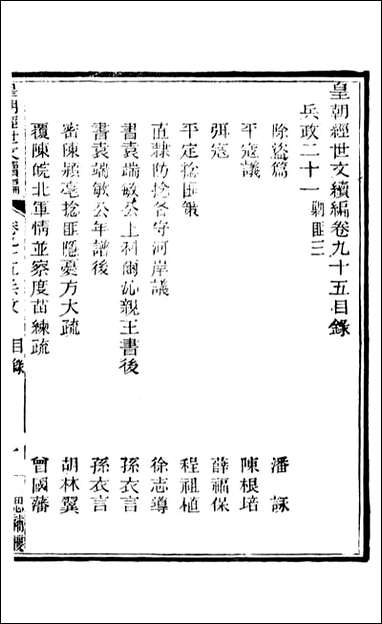 皇朝經世文續編卷九十五目錄
兵政二十一 勦匪三
除盜篇 潘詠
平寇議 陳根培
弭寇 薛福保
平定捻匪議 程祖植
直隸防捻各守河岸議 徐志導
書袁端敏公上科爾沁親王書後 孫衣言
書袁端敏公年譜後 孫衣言
密陳潁亳捻匪隱憂方大疏 胡林翼
覆陳皖北軍情並察度苗練疏 曾國藩
皇朝經世文續編 卷九十五兵政 目錄 一 思補樓